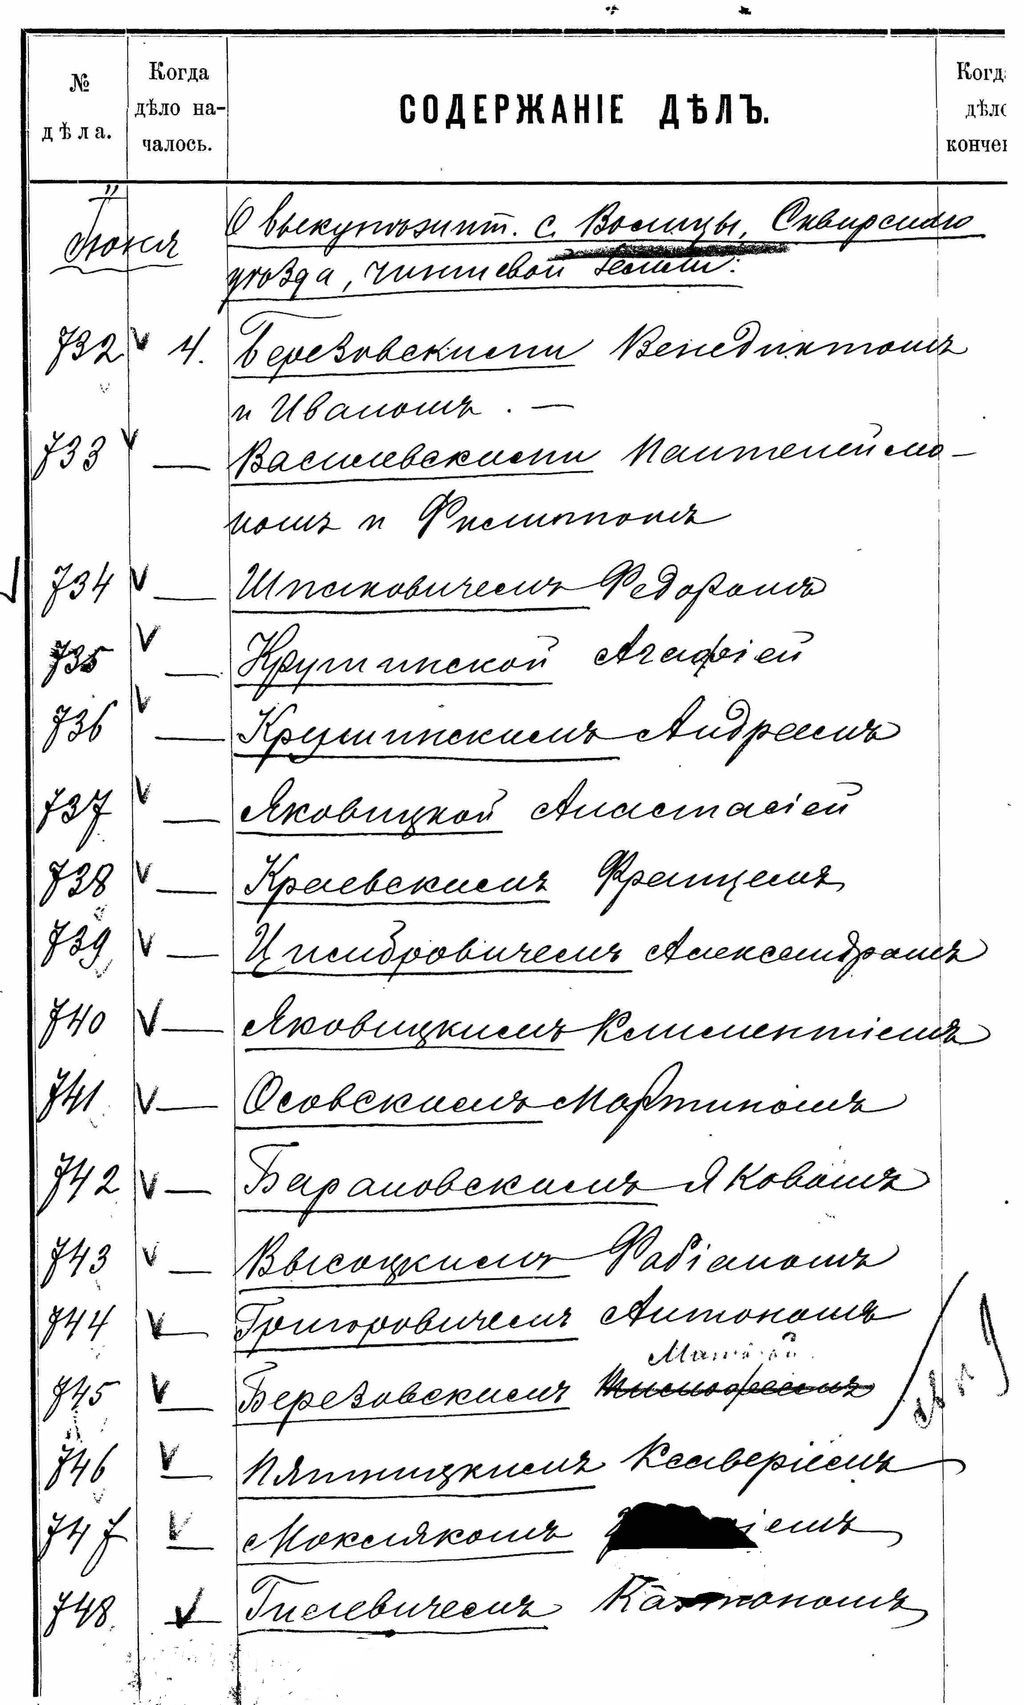 №
дѣла.
Когда
дѣло на-
чалось.
СОДЕРЖАНІЕ ДѢЛЪ.
Когд
дѣл
кончен
Іюня
О выкупѣ чинш. с. Волицы, Сквирскаго
уѣзда, чиншевой земли:
732 4. Березовскими Венедиктомъ
и Иваномъ. —
733 — Василевскими Пантелеймо-
номъ и Филиппомъ
734 — Шпаковичемъ Федоромъ
735 — Крушинской Агафіей
736 — Крушинскимъ Андреемъ
737 — Яковицкой Анастасіей
738 — Краевскимъ Францемъ
739 — Цимбровичемъ Александромъ
740 — Яковицкимъ Климентіемъ
741 — Осовскимъ Мартиномъ
742 — Барановскимъ Яковомъ
743 — Высоцкимъ Фабіаномъ
744 — Григоровичемъ Антономъ
Матвѣй
745 — Березовскимъ
746 — Пятницкимъ Ксаверіемъ
747 — Моклякомъ
748 — Гилевичемъ